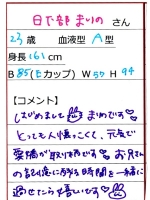 日下部 まりの さん
23歳 血液型 A型
身長 161 cm
B 85(Eカップ) W 59 H 94
【コメント】
はじめまして まりのです♡
とっても人懐っこくて、元気で
笑顔が取り柄です♡ お兄さん
の記憶に残る時間を一緒に
過せたら嬉しいです♡